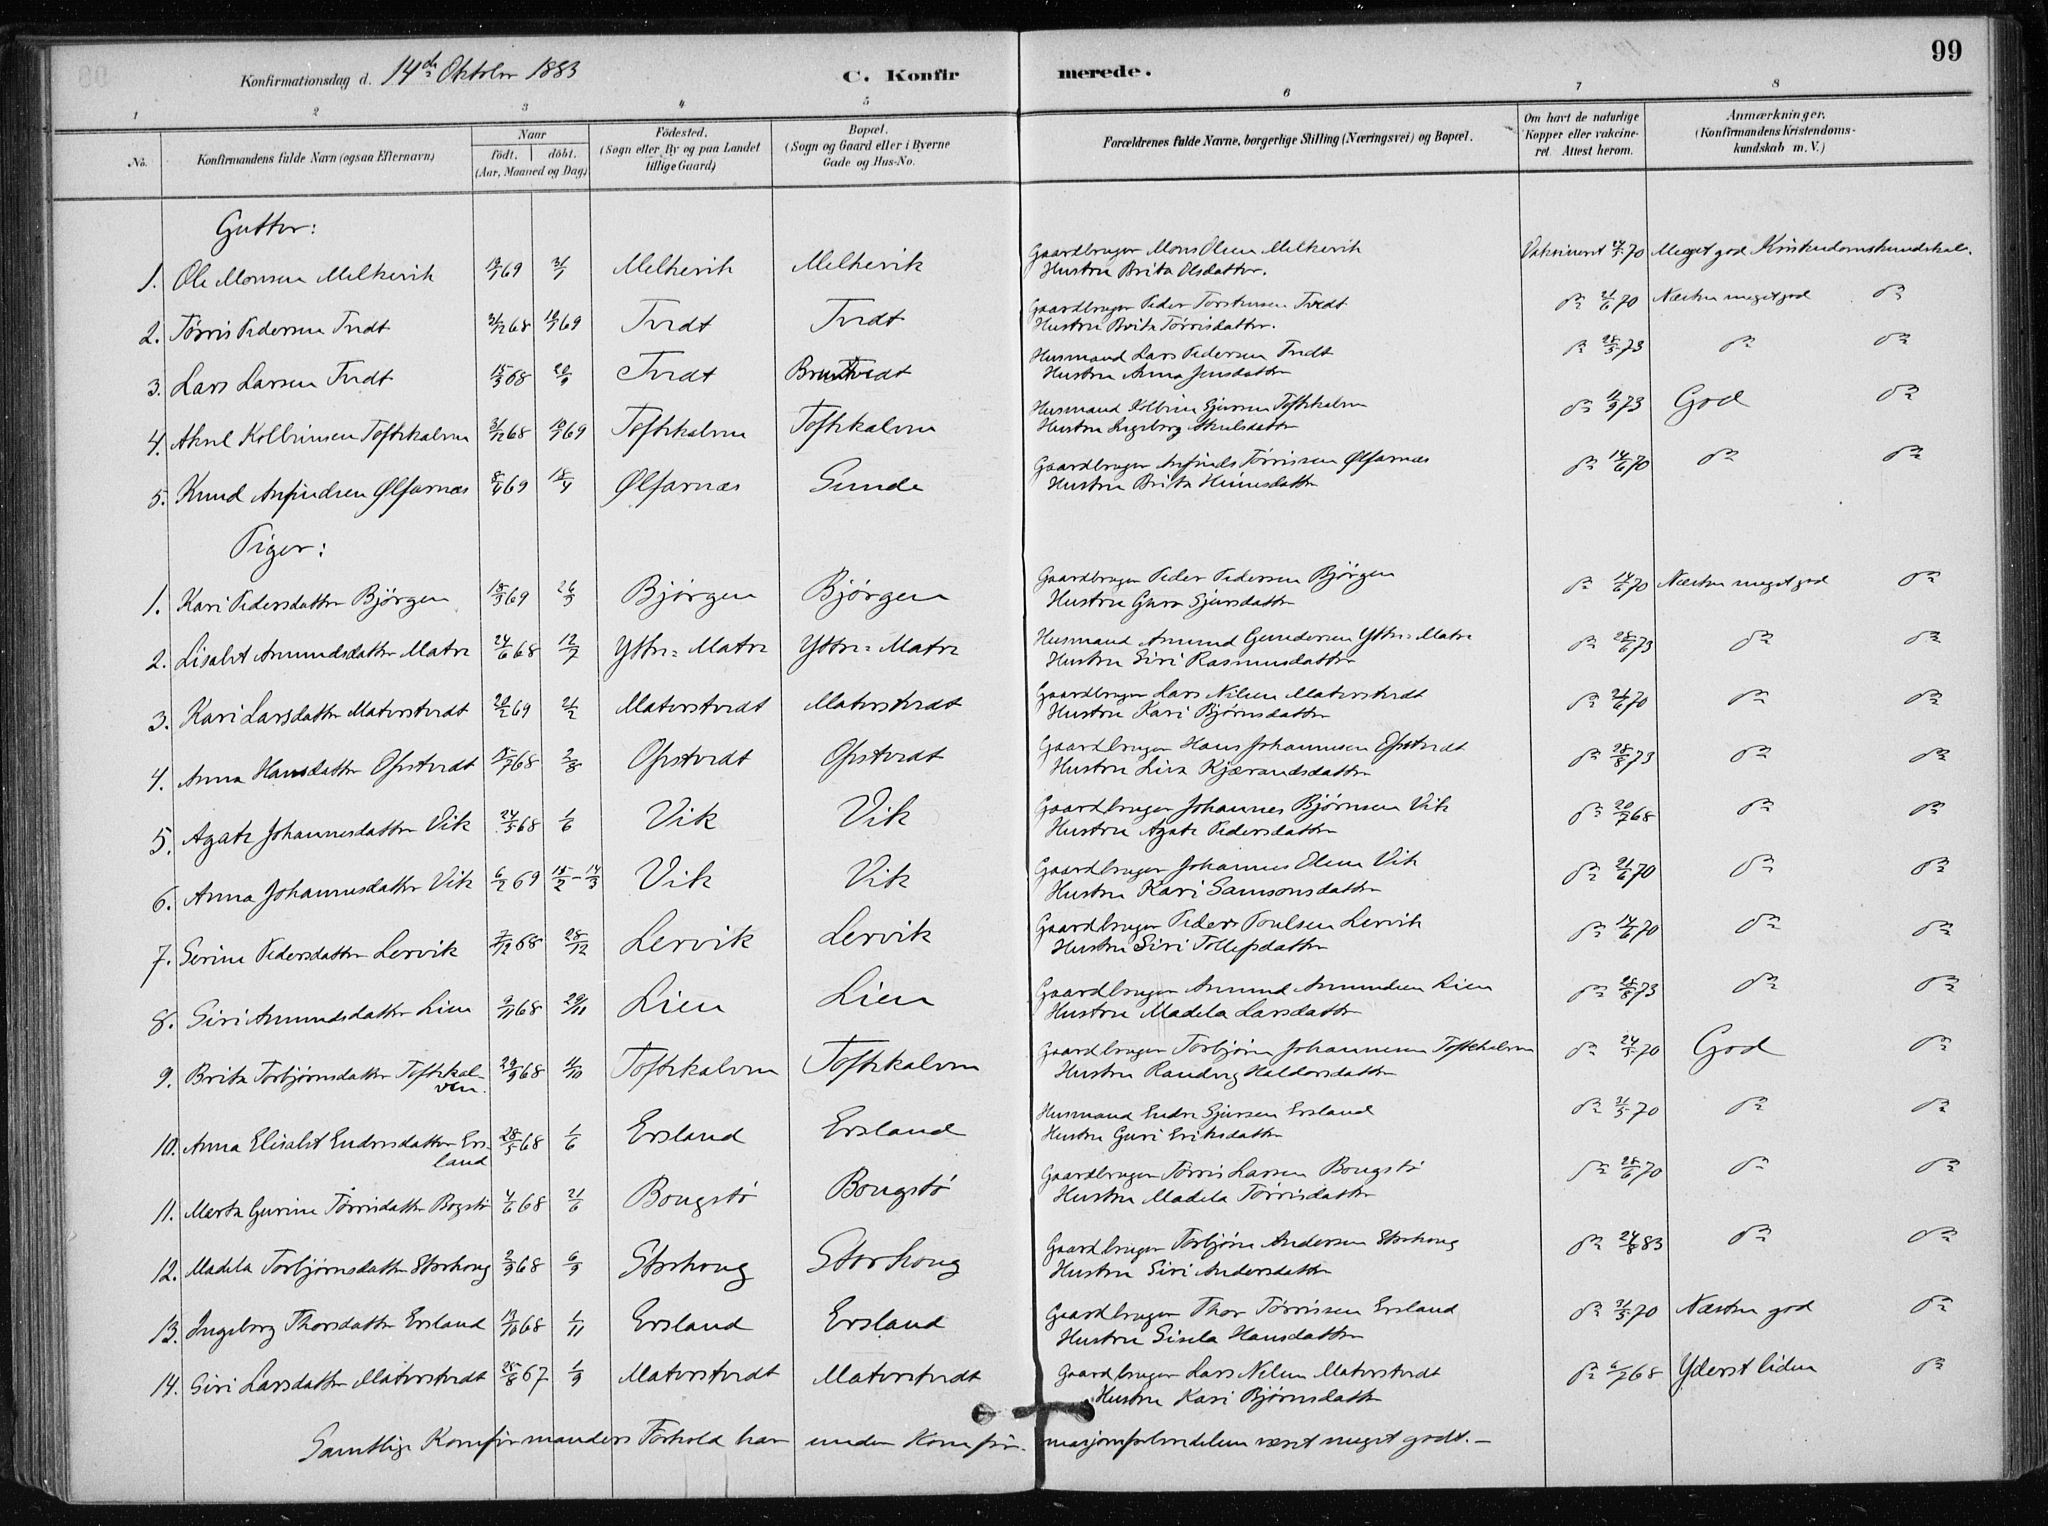 99
Konfirmationsdag d. 14de Oktober 1883
C. Konfirmerede.
1 2 3 4 5 6 7 8
No. Konfirmandens fulde Navn (ogsaa Efternavn) Naar født. døbt. (Aar, Maaned og Dag) Fødested. (Sogn eller By og paa Landet tillige Gaard) Bopæl. (Sogn og Gaard eller i Byerne Gade og Hus-No. Forældrenes fulde Navne, borgerlige Stilling (Næringsvei) og Bopæl. Om havt de naturlige Kopper eller vakcineret. Attest herom. Anmærkninger. (Konfirmandens Kristendomskundskab m. V.)
Gutter:
1. Ole Monsen Melkevik 69 Melkevik Melkevik Gaardbruger Mons Olsen Melkevik Vakcineret 70 Meget god Kristendomskundskab.
Hustru Brita Olsdatter.
2. Tørris Pedersen Tvedt 31/12 68 69 Tvedt Tvedt Gaardbruger Peder Torstensen Tvedt do 21/6 70 Næsten meget god do
Hustru Brita Tørrisdatter.
3. Lars Larsen Tvedt 68 20/9 Tvedt Tvedt Husmand Lars Pedersen Tvedt do 73 do do
Hustru Anna Jensdatter
4. Kolbeinsen Toftekalven 31/12 68 69 Toftekalven Toftekalven Husmand Kolbein Sjursen Toftekalven do 73 God do
Hustru Ingeborg
5. Knud Anfindsen Ølfarnæs 8/4 69 18/4 Ølfarnæs Sunde Gaardbruger Anfinds Tørrissen Ølfarnæs do 14/6 70 do do
Hustru Brita
Piger:
1. Kari Pedersdatter Bjørgen 18/3 69 26/3 Bjørgen Bjørgen Gaardbruger Peder Pedersen Bjørgen do 14/6 70 Næsten meget god do
Hustru Guro Sjursdatter
2. Lisabet Amundsdatter Matre 24/6 68 12/7 Yttre-Matre Yttre-Matre Husmand Amund Gundersen Yttre-Matre do 73 do do
Hustru Siri Rasmusdatter
3. Kari Larsdatter Materstvedt 69 21/2 Materstvedt Materstvedt Gaardbruger Lars Nilsen Materstvedt do 21/6 70 do do
Hustru Kari Bjørnsdatter
4. Anna Hansdatter Opstvedt 15/7 68 2/8 Opstvedt Opstvedt Gaardbruger Hans Johannesen Opstvedt do 28/8 73 do do
Hustru Kjærandsdatter
5. Agate Johannesdatter Vik 24/5 68 1/6 Vik Vik Gaardbruger Johannes Bjørnsen Vik do 20/7 68 do do
Hustru Agate Pedersdatter
6. Anna Johannesdatter Vik 6/2 69 15/2 - 14/3 Vik Vik Gaardbruger Johannes Olsen Vik do 21/6 70 do do
Hustru Kari Samsonsdatter
7. Serine Pedersdatter Lervik 7/12 68 28/12 Lervik Lervik Gaardbruger Peder Poulsen Lervik do 14/6 70 do do
Hustru Siri Tollefsdatter
8. Siri Amundsdatter Lien 9/11 68 29/11 Lien Lien Gaardbruger Amund Amundsen Lien do 28/8 73 do do
Hustru Madela Larsdatter
9. Brita Torbjørnsdatter Toftekalven 68 11/10 Toftekalven Toftekalven Gaardbruger Torbjørn Johannesen Toftekalven do 24/5 70 God do
Hustru Randvig Haldorsdatter
10. Anna Elisabet Endresdatter Ersland 28/5 68 1/6 Ersland Ersland Husmand Endre Sjursen Ersland do 31/5 70 do do
Hustru Guri Eriksdatter
11. Merta Gurine Tørrisdatter Bogstø 4/6 68 21/6 Bougstø Bougstø Gaardbruger Tørris Larsen Bougstø do 28/6 70 do do
Hustru Madela Tørrisdatter
12. Madela Torbjørnsdatter Storhoug 2/9 68 6/9 Storhoug Storhoug Gaardbruger Torbjørn Andersen Storhoug do 24/8 83 do do
Hustru Siri Andersdatter
13. Ingeborg Thorsdatter Ersland 68 1/11 Ersland Ersland Gaardbruger Thor Tørrissen Ersland do 31/5 70 Næsten god do
Hustru Sisela Hansdatter
14. Siri Larsdatter Materstvedt 25/8 67 1/9 Materstvedt Materstvedt Gaardbruger Lars Nilsen Materstvedt do 6/7 68 Yderst liden do
Hustru Kari Bjørnsdatter
Samtlige Konfirmanders Forhold har under Konfirmasjonsforberedelsen været meget godt.—